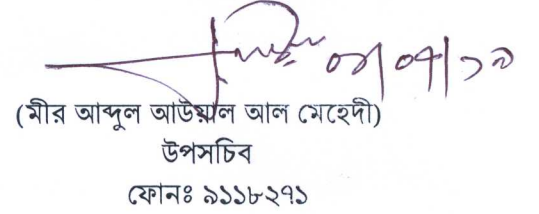 (মীর আব্দুল আউয়াল আল মেহেদী)
উপসচিব
ফোনঃ ৯১১৮২৭১